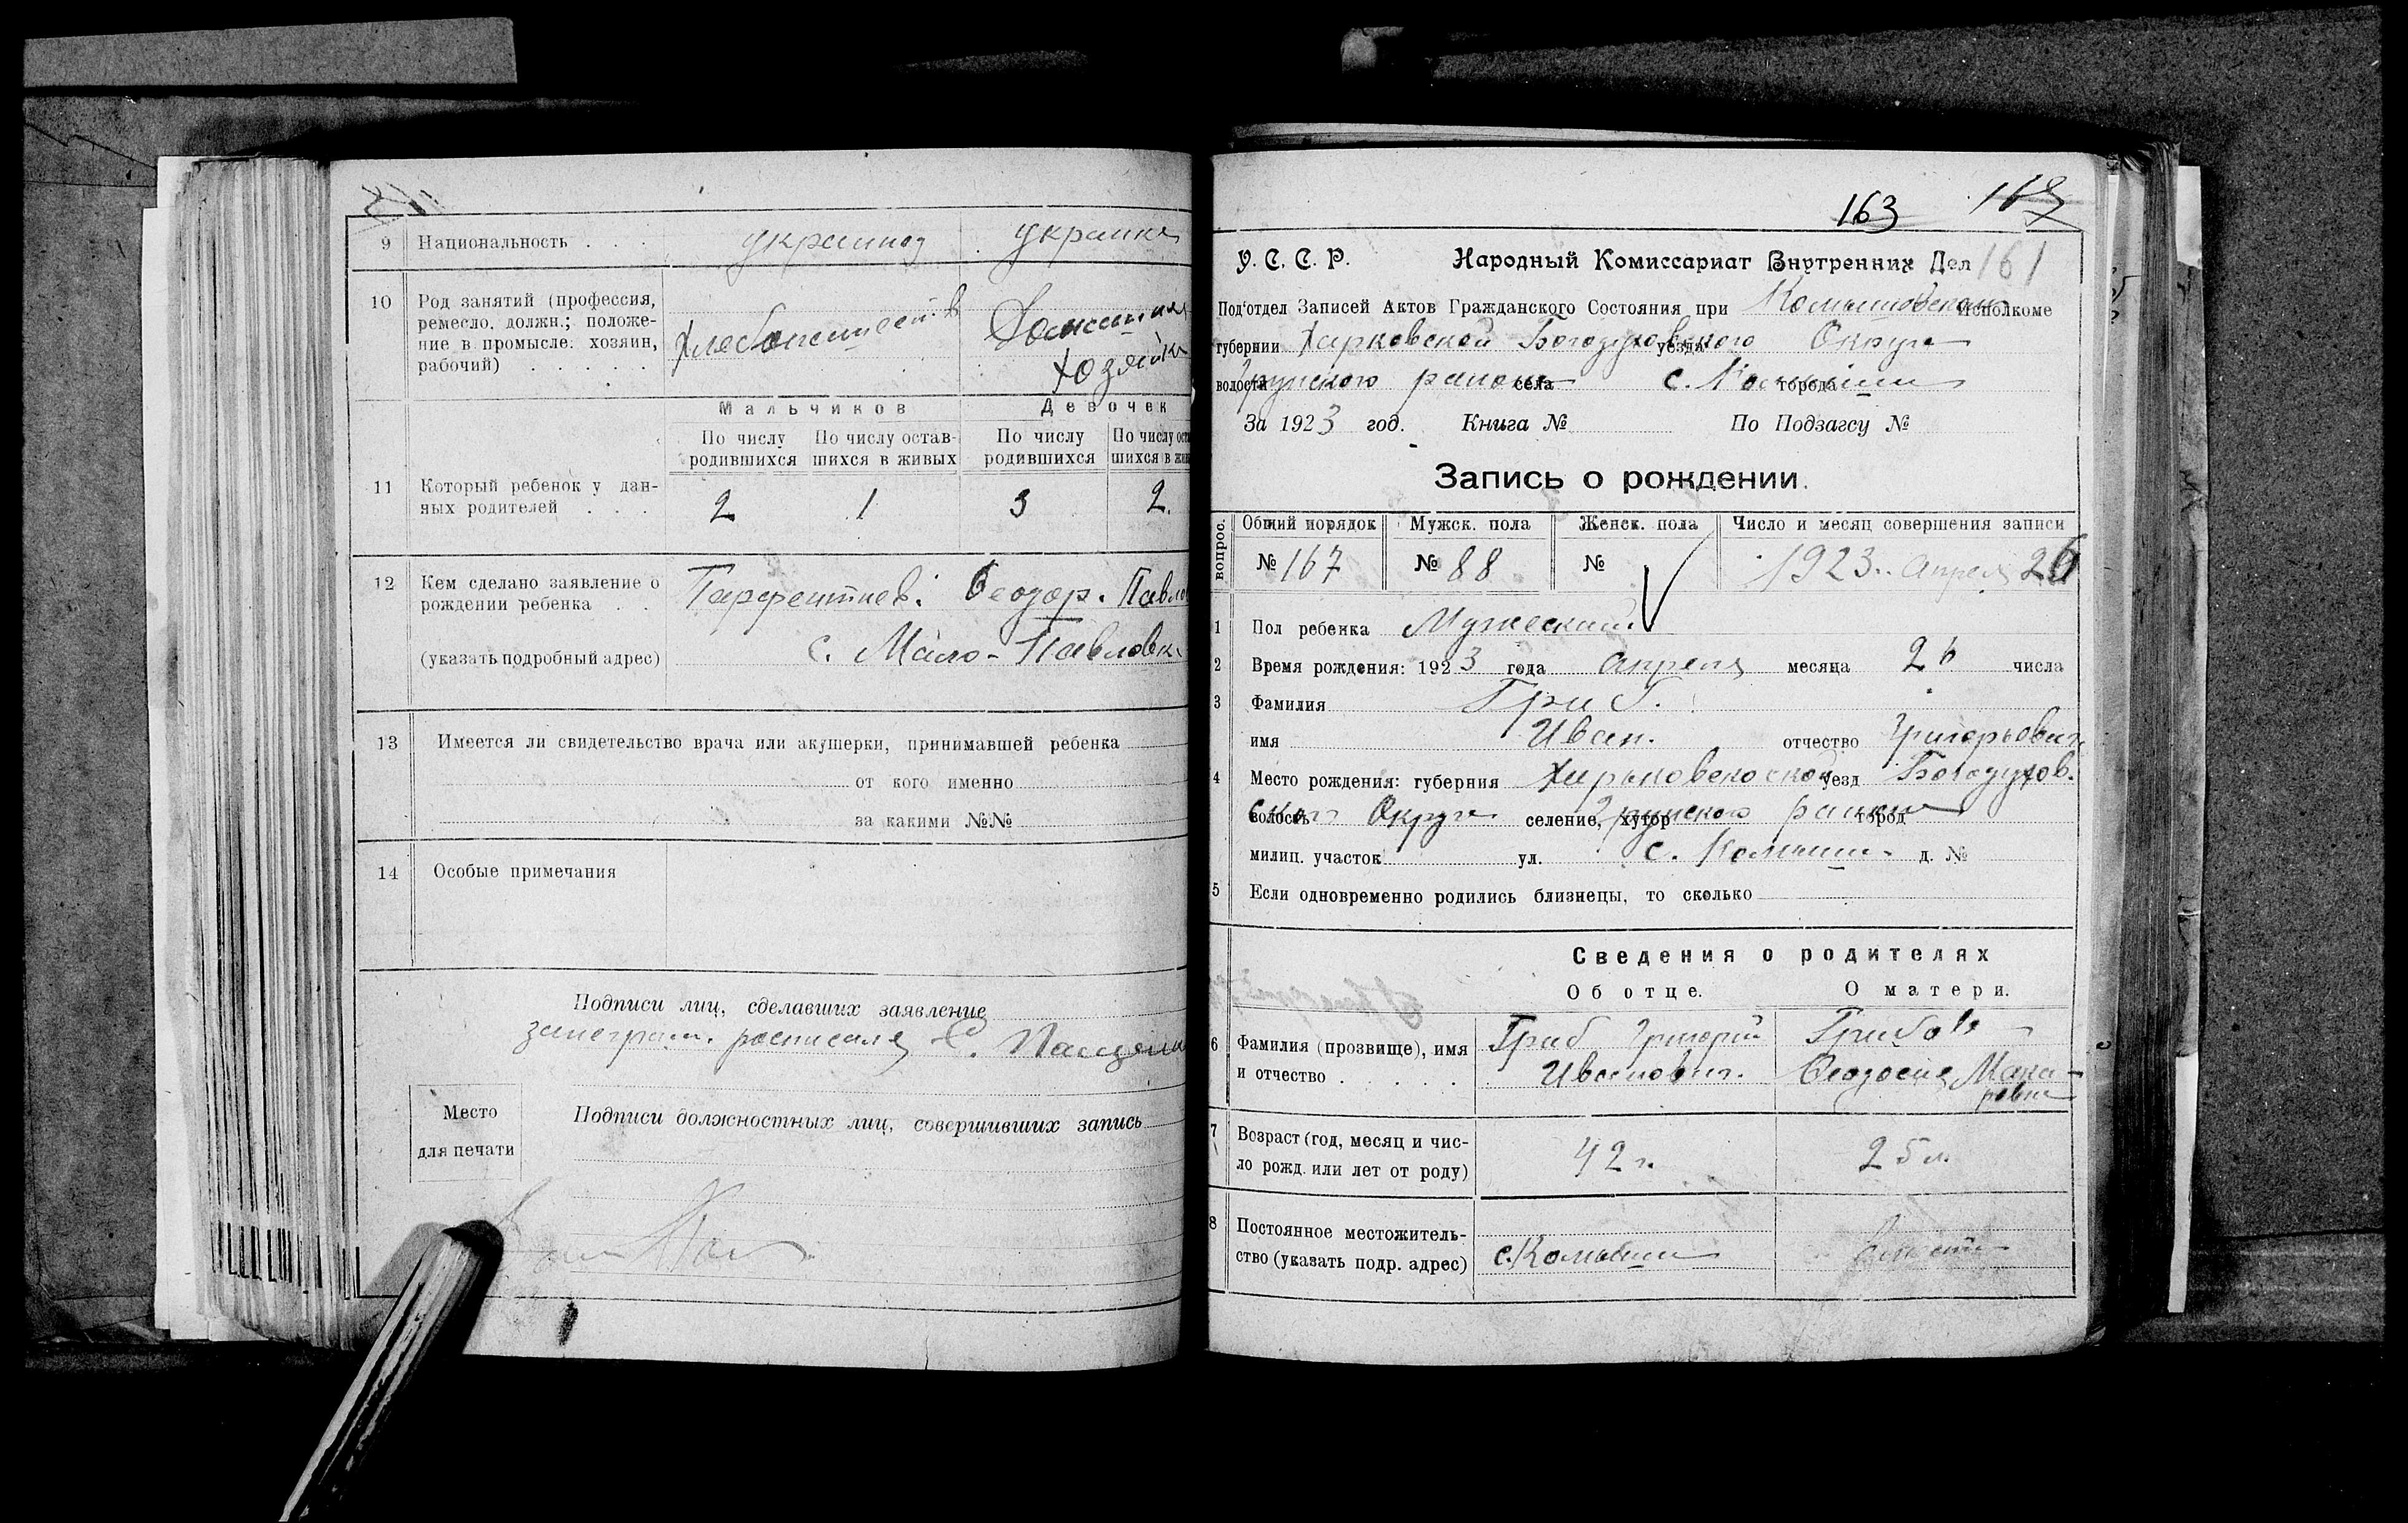 9 Национальность . . . украинец украинка
10 Род занятий (профессия,
ремесло, должн.; положе-
ние в промысле: хозяин,
рабочий) . . . . .
Домашняя
хозяйка
Мальчиков Девочек
По числу родившихся По числу остав-шихся в живых По числу родившихся По числу ост шихся в жив
11 Который ребенок у дан-
ных родителей . . . 2 1 3 2
12 Кем сделано заявление о
рождении ребенка . . Феодор. Павлов
(указать подробный адрес) с. Мало-Павловк
13 Имеется ли свидетельство врача или акушерки, принимавшей ребенка
от кого именно
за какими №№
14 Особые примечания
Подписи лиц, сделавших заявление
за неграм. росписался
Место
для печати
Подписи должностных лиц, совершивших запись
163 167
У. С. С. Р. Народный Комиссариат Внутренних Дел 161
Под'отдел Записей Актов Гражданского Состояния при Комышовском Исполкоме
губернии Харковской Богодуховского уезда Округа
волости Грунского района села с. Комыши города
За 1923 год. Книга № По Подзагсу №
Запись о рождении.
вопрос. Общий порядок Мужск. пола Женск. пола Число и месяц совершения записи
№ 167 № 88 № 1923. апреля 26
1 Пол ребенка Мужеский
2 Время рождения: 1923 года апреля месяца 26 числа
3 Фамилия Гриб.
имя Иван. отчество Григорьович
4 Место рождения: губерния уезд Богодухов.
ской волость Округи селение, хутор Грунского района город
милиц. участок ул. с. Комыши д. №
5 Если одновременно родились близнецы, то сколько
Сведения о родителях
Об отце. О матери.
6 Фамилия (прозвище), имя Гриб Григорий Грибова
и отчество . . . . . Иванович. Феодосия Мака-
ровна
7 Возраст (год, месяц и чис-
ло рожд. или лет от роду) 42 г. 25 л.
8 Постоянное местожитель-
ство (указать подр. адрес) с. Комыши